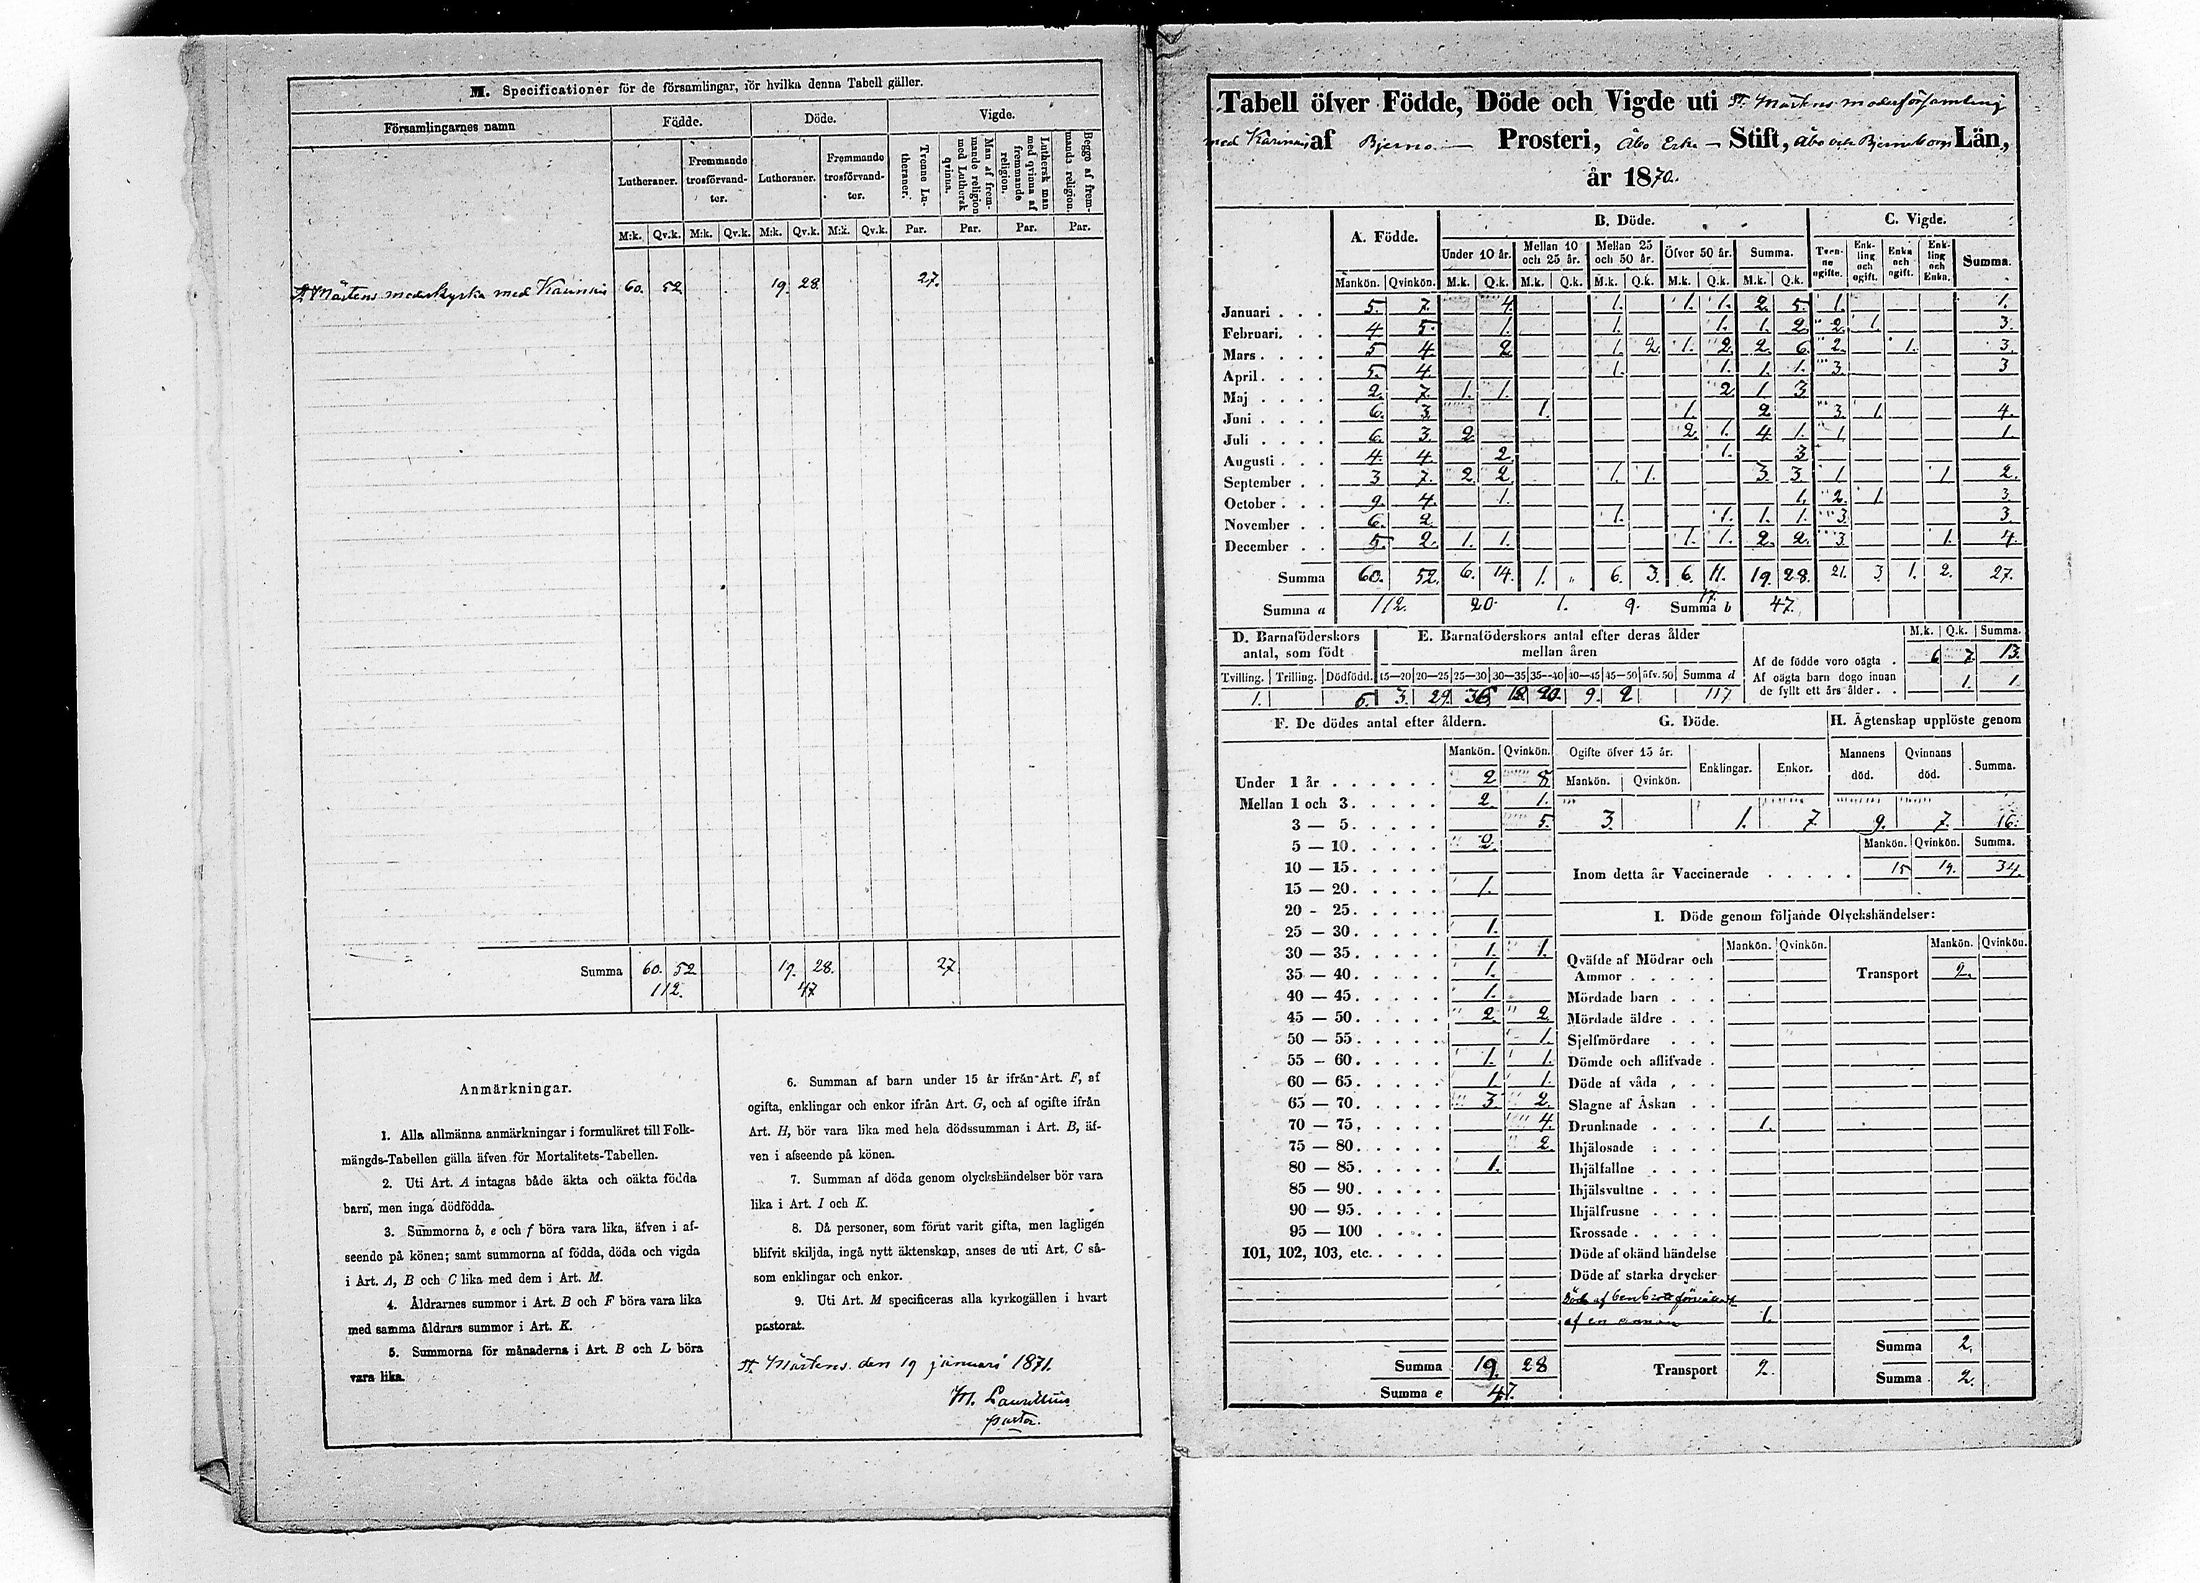 M. Specificationer för de församlingar, för hvilka denna Tabell gäller.
Församlingarnes namn Födde. Döde. Vigde.
Lutheraner. Fremmande trosförvandter. Lutheraner. Fremmande trosförvandter. Tvenne Lutheraner. Man af fremmande religion med Luthersk qvinna. Luthersk man med qvinna af fremmande religion. Begge af fremmands religion.
M:k. Qv.k. M:k. Qv.k. M:k. Qv.k. M:k. Qv.k. Par. Par. Par. Par.
St Mårtens moderkyrka med Karinais 60. 52 19. 28. 27.
Summa 60. 52 19. 28. 27.
112. 47
Anmärkningar.
1. Alla allmänna anmärkningar i formuläret till Folk-
mängds-Tabellen gälla äfven för Mortalitets-Tabellen.
2. Uti Art. A intagas både äkta och oäkta födda
barn, men inga dödfödda.
3. Summorna b, e och f böra vara lika, äfven i af-
seende på könen; samt summorna af födda, döda och vigda
i Art. A, B och C lika med dem i Art. M.
4. Åldrarnes summor i Art. B och F böra vara lika
med samma åldrars summor i Art. K.
5. Summorna för månaderna i Art. B och L böra
vara lika.
6. Summan af barn under 15 år ifrån Art. F, af
ogifta, enklingar och enkor ifrån Art. G, och af ogifte ifrån
Art. H, bör vara lika med hela dödssumman i Art. B, äf-
ven i afseende på könen.
7. Summan af döda genom olyckshändelser bör vara
lika i Art. I och K.
8. Då personer, som förut varit gifta, men lagligen
blifvit skiljda, ingå nytt äktenskap, anses de uti Art. C så-
som enklingar och enkor.
9. Uti Art. M specificeras alla kyrkogällen i hvart
pastorat.
St. Mårtens den 19 januari 1871.
M. Laurellius
pastor.
Tabell öfver Födde, Döde och Vigde uti St. Mårtens moderförsamling
med Karinais af Bjerno Prosteri, Åbo Erke- Stift, Åbo och Bjerneborgs Län,
år 1870.
A. Födde. B. Döde. C. Vigde.
Under 10 år. Mellan 10 och 25 år. Mellan 25 och 50 år. Öfver 50 år. Summa. Tvenne ogifte. Enkling och ogift. Enka och ogift. Enkling och Enka. Summa.
Mankön. Qvinkön. M.k. Q.k. M.k. Q.k. M.k. Q.k. M.k. Q.k. M.k. Q.k.
Januari . . . 5. 7. 4. 1. 1. 1. 2. 5. 1. 1.
Februari. . . 4 5. 1. 1. 1. 1. 2. 2. 1. 3.
Mars . . . . 5 4. 2. 1. 2. 1. 2. 2. 6. 2. 1. 3.
April . . . . 5. 4. 1. 1. 1. 1. 3. 3
Maj . . . . 2. 7. 1. 1. 2 1 3
Juni . . . . 6. 3. 1. 1. 2 3. 1. 4.
Juli . . . . 6. 3. 2 2. 1. 4. 1. 1. 1.
Augusti . . . 4. 4. 2. 1. 3.
September . . 3 7. 2. 2. 1. 1. 3. 3. 1 1 2.
October . . . 9. 4. 1. 1. 2. 1. 3.
November . . 6. 2. 1. 1. 1. 1. 3. 3.
December . . 5. 2. 1. 1. 1. 1. 2. 2. 3. 1. 4.
Summa 60. 52. 6. 14. 1. „ 6. 3. 6. 11. 19. 28. 21. 3 1. 2. 27.
Summa a 112. 20. 1. 9. 17. Summa b 47.
D. Barnaföderskors antal, som födt
E. Barnaföderskors antal efter deras ålder mellan åren
M.k. Q.k. Summa.
Tvilling. Trilling. Dödfödd. 15—20 20—25 25—30 30—35 35—40 40—45 45—50 öfv. 50 Summa d
1. 6. 3. 29. 36. 18. 20. 9. 2 117
Af de födde voro oägta . 6 7. 13.
Af oägta barn dogo innan
de fyllt ett års ålder . . 1. 1.
F. De dödes antal efter åldern.
Mankön. Qvinkön.
Under 1 år . . . . . . 2 8
Mellan 1 och 3. . . . . 2. 1.
3 — 5. . . . . 5.
5 — 10. . . . . 2.
10 — 15. . . . .
15 — 20. . . . . 1.
20 - 25. . . . .
25 — 30. . . . . 1.
30 — 35. . . . . 1. 1.
35 — 40. . . . . 1.
40 — 45. . . . . 1.
45 — 50. . . . . 2. 2.
50 — 55. . . . . 1.
55 - 60. . . . . 1. 1.
60 — 65. . . . . 1. 1.
65 — 70. . . . . 3. 2.
70 — 75. . . . . 4.
75 — 80. . . . . 2.
80 — 85. . . . . 1.
85 — 90. . . . .
90 — 95. . . . .
95 — 100 . . . .
101, 102, 103, etc. . . . .
Summa 19. 28
Summa e 47.
G. Döde.
Ogifte öfver 15 år. Enklingar. Enkor.
Mankön. Qvinkön.
3. 1. 7
H. Ägtenskap upplöste genom
Mannens död. Qvinnans död. Summa.
9. 7. 16.
Mankön. Qvinkön. Summa.
Inom detta år Vaccinerade . . . . . 15 19. 34.
I. Döde genom följande Olyckshändelser:
Mankön. Qvinkön. Mankön. Qvinkön.
Qväfde af Mödrar och
Ammor . . . . Transport 2.
Mördade barn . . .
Mördade äldre . . .
Sjelfmördare . . .
Dömde och aflifvade .
Döde af våda . . .
Slagne af Åskan . .
Drunknade . . . . 1.
Ihjälosade . . . .
Ihjälfallne . . . .
Ihjälsvultne . . . .
Ihjälfrusne . . . .
Krossade . . . . .
Döde af okänd händelse
Döde af starka drycker
Död af benbrott förorsakadt
af en annan 1.
Transport 2.
Summa 2.
Summa 2.